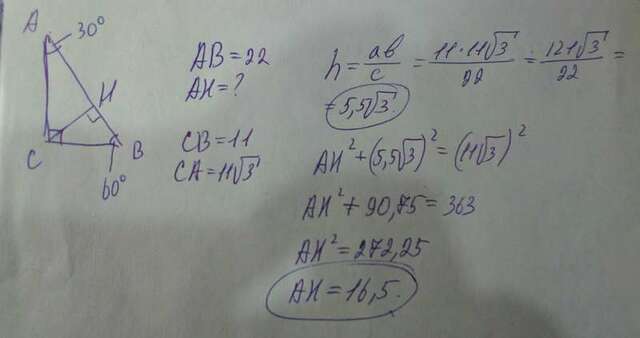 A
30°
H
C
B
60°
AB = 22
AH = ?
CB = 11
CA = 11√3
h = ab/c = 11·11√3/22 = 121√3/22 =
= 5,5√3
AH² + (5,5√3)² = (11√3)²
AH² + 90,75 = 363
AH² = 272,25
AH = 16,5.